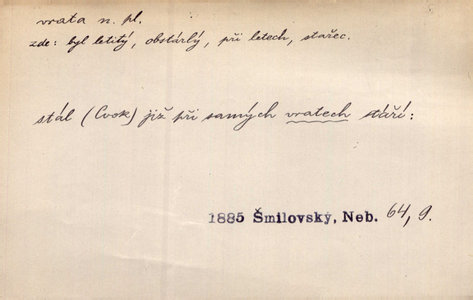 vrata n. pl.
zde: byl letitý, obstárlý, při letech, stařec.
stál (Cvok) již při samých vratech stáří:
1885 Šmilovský, Neb. 64, 9.